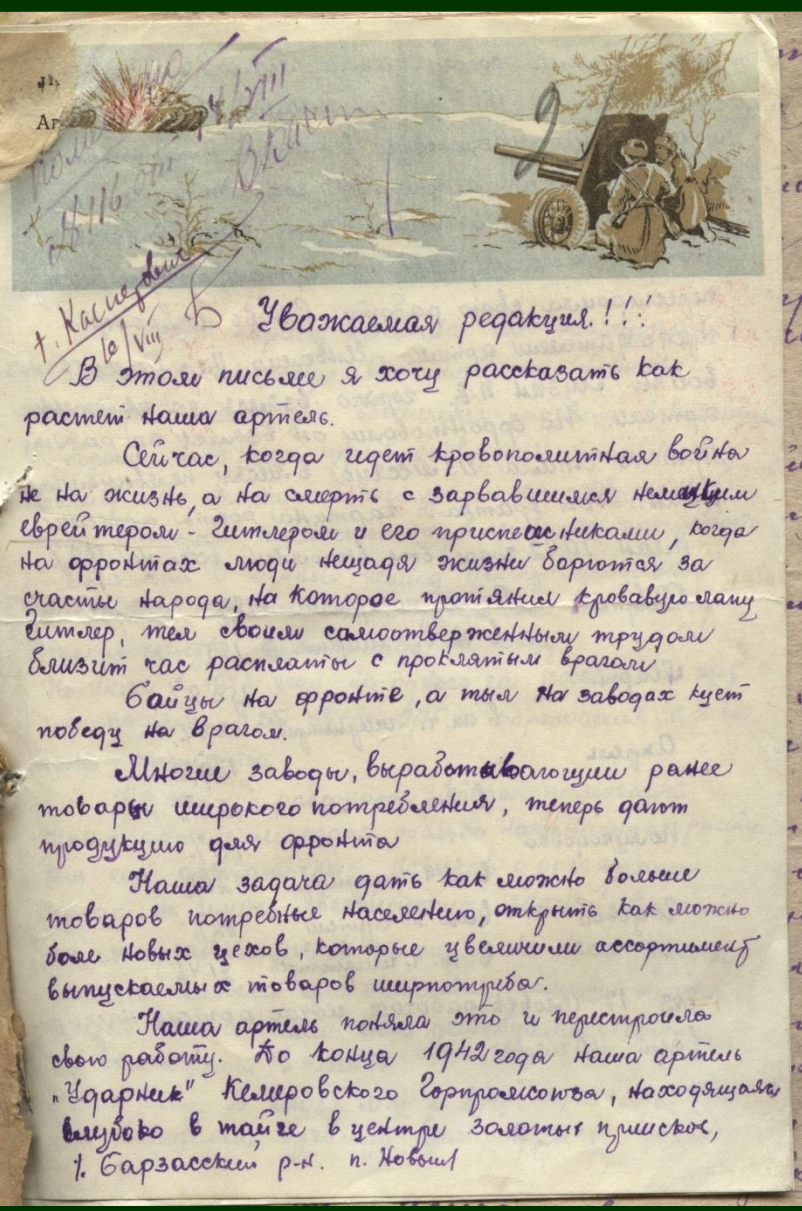 Аг
№ 116 от 14/VIII
2
т. Каспер
16/VIII
Уважаемая редакция!!!
В этом письме я хочу рассказать как
растет наша артель.
Сейчас, когда идет кровополитная война
не на жизнь, а на смерть с зарвавшимся немецким
еврейтером - Гитлером и его приспешниками, когда
на фронтах люди нещадя жизни борются за
счастье народа, на которое протянул кровавую лапу
Гитлер, тыл своим самоотверженным трудом
близит час расплаты с проклятым врагом
Бойцы на фронте, а тыл на заводах кует
победу на врагом.
Многие заводы, вырабатывающии ранее
товары широкого потребления, теперь дают
продукцию для фронта
Наша задача дать как можно больше
товаров потребные населению, открыть как можно
боле новых цехов, которые увеличили ассортимент
выпускаемых товаров ширпотреба.
Наша артель поняла это и перестроила
свою работу. До конца 1942 года наша артель
"Ударник" Кемеровского Горпромсоюза, находящаяся
глубоко в тайге в центре золотых приисков,
Барзасский р-н. п. Новый